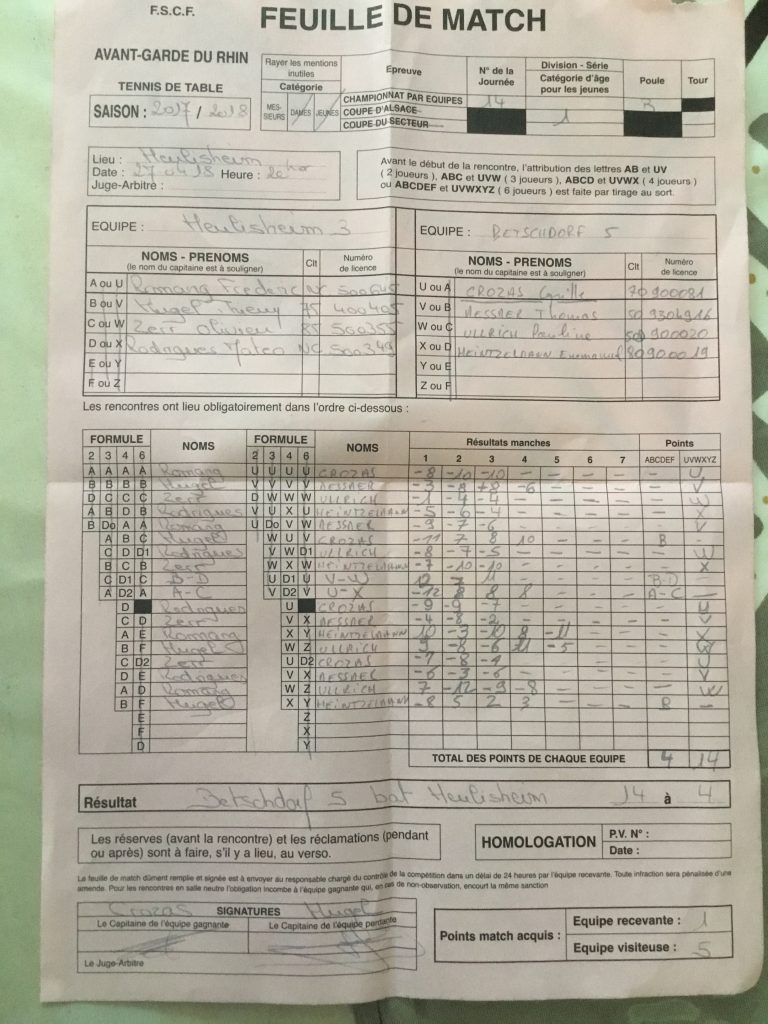 F.S.C.F.
FEUILLE DE MATCH
AVANT-GARDE DU RHIN
TENNIS DE TABLE
SAISON : 2017 / 2018
Rayer les mentions inutiles
Catégorie
MES-SIEURS DAMES JEUNES
Epreuve
CHAMPIONNAT PAR EQUIPES
COUPE D'ALSACE
COUPE DU SECTEUR
N° de la Journée
14
Division - Série
Catégorie d'âge pour les jeunes
1
Poule
B
Tour
Lieu : Heulisheim
Date : 27 04 18 Heure : 20h
Juge-Arbitre :
Avant le début de la rencontre, l'attribution des lettres AB et UV
( 2 joueurs ), ABC et UVW ( 3 joueurs ), ABCD et UVWX ( 4 joueurs )
ou ABCDEF et UVWXYZ ( 6 joueurs ) est faite par tirage au sort.
EQUIPE : Heulisheim 3
NOMS - PRENOMS Clt Numéro de licence
(le nom du capitaine est à souligner)
A ou U Romang Frederic NC
B ou V Hugel Thierry 75 400405
C ou W Zerr Olivier 85 500355
D ou X Rodrigues Mateo NC 500349
E ou Y
F ou Z
EQUIPE : BETSCHDORF 5
NOMS - PRENOMS Clt Numéro de licence
(le nom du capitaine est à souligner)
U ou A CROZAS 70 900081
V ou B MESSNER Thomas 50 9304916
W ou C ULLRICH Pauline 50 900020
X ou D HEINTZELMANN Emmanuel 80 900019
Y ou E
Z ou F
Les rencontres ont lieu obligatoirement dans l'ordre ci-dessous :
FORMULE NOMS FORMULE NOMS Résultats manches Points
2 3 4 6 2 3 4 6 1 2 3 4 5 6 7 ABCDEF UVWXYZ
A A A A Romang U U U U CROZAS -8 -10 -10 - - - - - U
B B B B Hugel V V V V MESSNER -3 -9 +8 -6 - - - - V
D C C C Zerr D W W W ULLRICH -1 -4 -4 - - - - - W
A B D B Rodrigues V U X U HEINTZELMANN -5 -6 -4 - - - - - X
B Do A A Romang U Do V W MESSNER -9 -7 -6 - - - - - V
A B C Hugel W U V CROZAS -11 7 8 10 - - - B -
C D D1 Rodrigues V W D1 ULLRICH -8 -7 -5 - - - - - W
B C B Zerr W X W HEINTZELMANN -7 -10 -10 - - - - - X
C D1 C B-D U D1 U V-W 12 7 11 - - - - B-D -
A D2 A A-C V D2 V U-X -12 8 8 8 - - - A-C -
D Rodrigues U CROZAS -9 -9 -7 - - - - - U
C D Zerr V X MESSNER -4 -8 -2 - - - - - V
A E Romang X Y HEINTZELMANN 10 -3 -10 8 -11 - - - X
B F Hugel W Z ULLRICH 9 -8 -6 11 -5 - - - W
C D2 Zerr U D2 CROZAS -7 -8 -4 - - - - - U
D E Rodrigues V X MESSNER -6 -3 -6 - - - - - V
A D Romang W Z ULLRICH 7 -12 -9 -8 - - - - W
B F Hugel X Y HEINTZELMANN -8 5 2 3 - - - B -
E Z
F X
D Y
TOTAL DES POINTS DE CHAQUE EQUIPE 4 14
Résultat Betschdorf 5 bat Heulisheim 14 à 4
Les réserves (avant la rencontre) et les réclamations (pendant
ou après) sont à faire, s'il y a lieu, au verso.
HOMOLOGATION
P.V. N° :
Date :
La feuille de match dûment remplie et signée est à envoyer au responsable chargé du contrôle de la compétition dans un délai de 24 heures par l'équipe recevante. Toute infraction sera pénalisée d'une
amende. Pour les rencontres en salle neutre l'obligation incombe à l'équipe gagnante qui, en cas de non-observation, encourt la même sanction
Crozas SIGNATURES Hugel
Le Capitaine de l'équipe gagnante Le Capitaine de l'équipe perdante
Le Juge-Arbitre
Points match acquis :
Equipe recevante : 1
Equipe visiteuse : 5